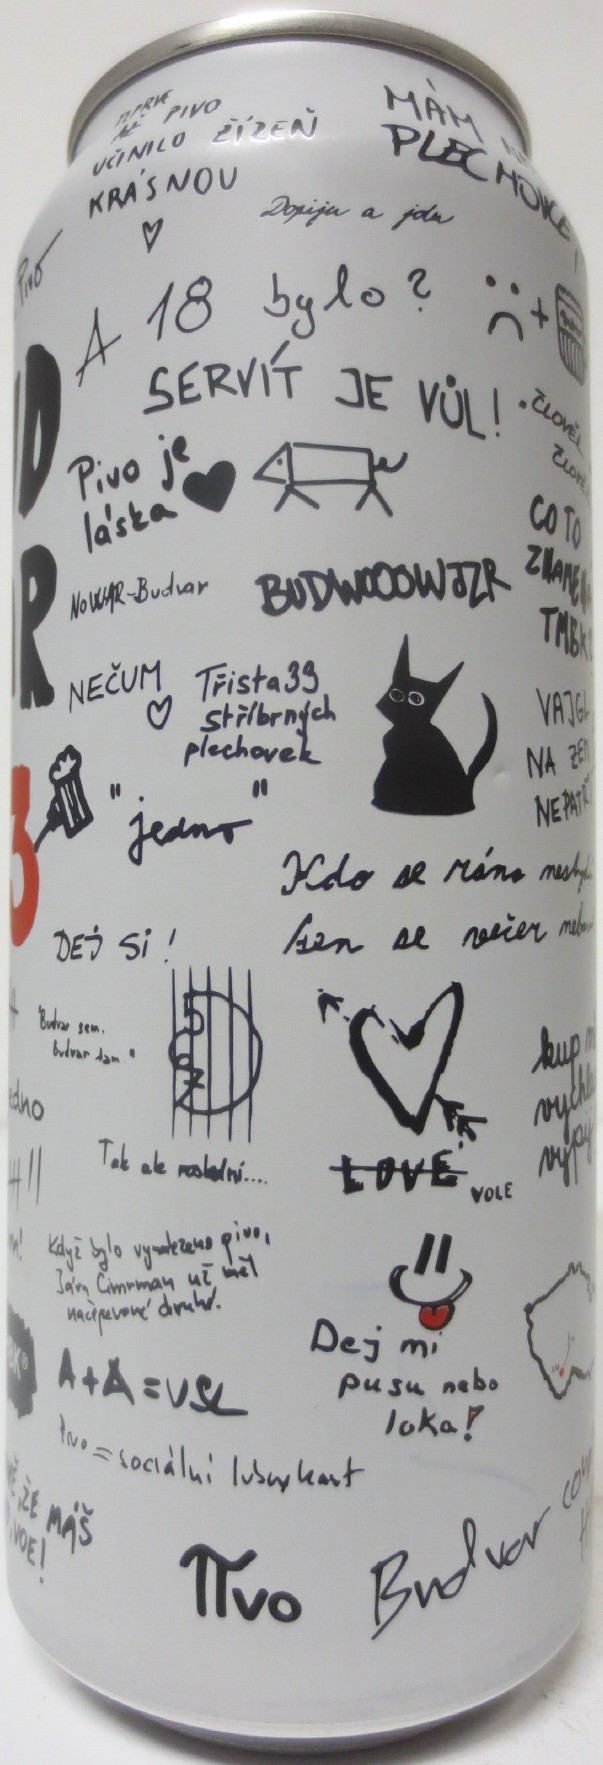 TEPRVE
AŽ PIVO
UČINILO ŽÍZEŇ
KRÁSNOU
MÁM
PLECHOVCE!
Dopiju a jdu
Pivo
A 18 bylo?
+
SERVÍT JE VŮL!
ČLOVĚK
Pivo je
láska
CO TO
ZNAMENÁ
TMBK?
NoWAR-Budvar
BUDWOOOWJZR
NEČUM
Třista33
stříbrných
plechovek
VAJGL
NA ZEM
NEPATŘÍ
3
"jedno"
Kdo se ráno
ten se večer
DEJ SI!
"Budvar sem,
Budvar tam."
5
6
7
kup
vychla
vypij
Tak ale poslední....
LOVE
VOLE
Když bylo vynalezeno pivo,
Jára Cimrman už měl
načepované druhé.
Dej mi
pusu nebo
loka!
A+A=VŠE
Pivo = sociální lubrykant
ŽE MÁŠ
VOE!
πvo
Budvar